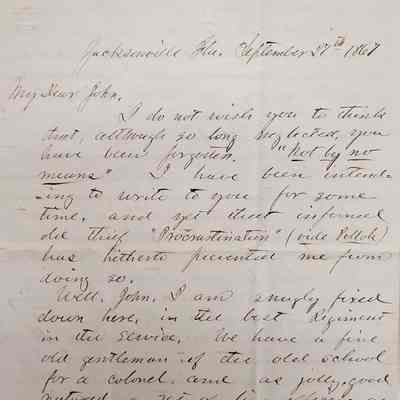 Jacksonville Fla. September 27th 1867
My Dear John,
I do not wish you to think
that, although so long neglected, you
have been forgotten. "Not by no
means" I have been intend-
-ing to write to you for some
time, and yet that infernal
old thief "Procrastination" (vide Pollok)
has hitherto prevented me from
doing so.
Well, John, I am snugly fixed
down here, in the best Regiment
in the Service. We have a fine
old gentleman of the old school
for a colonel, and as jolly, good
natured a set of